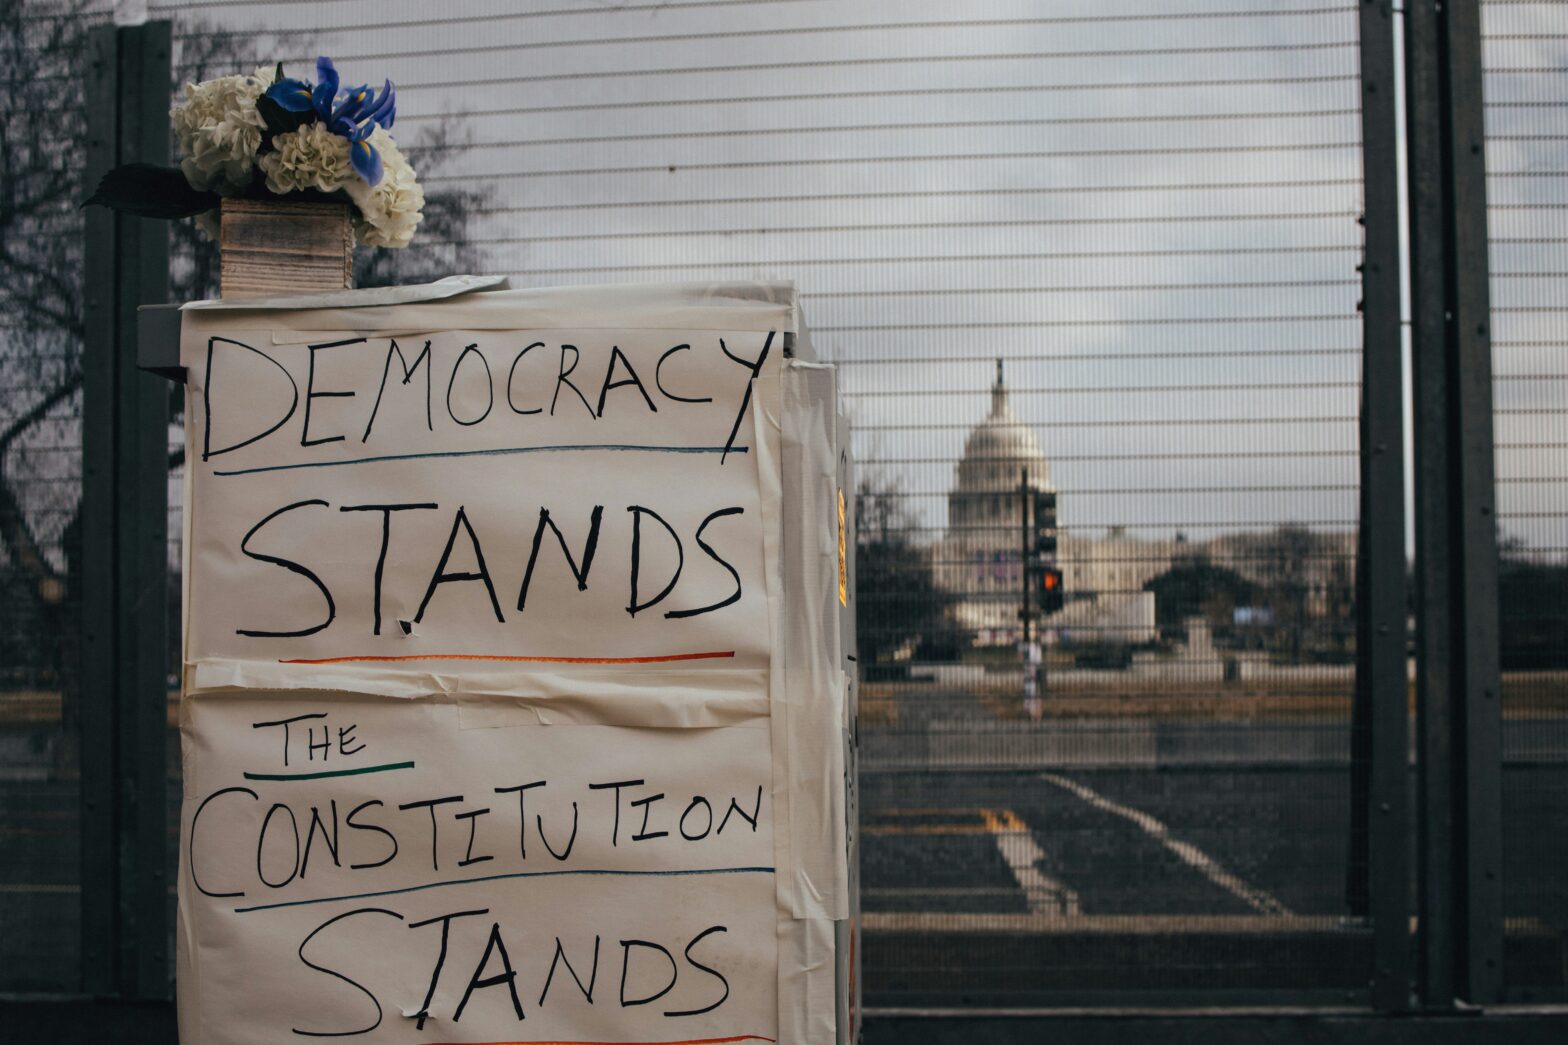 DEMOCRACY
STANDS
THE
CONSTITUTION
STANDS